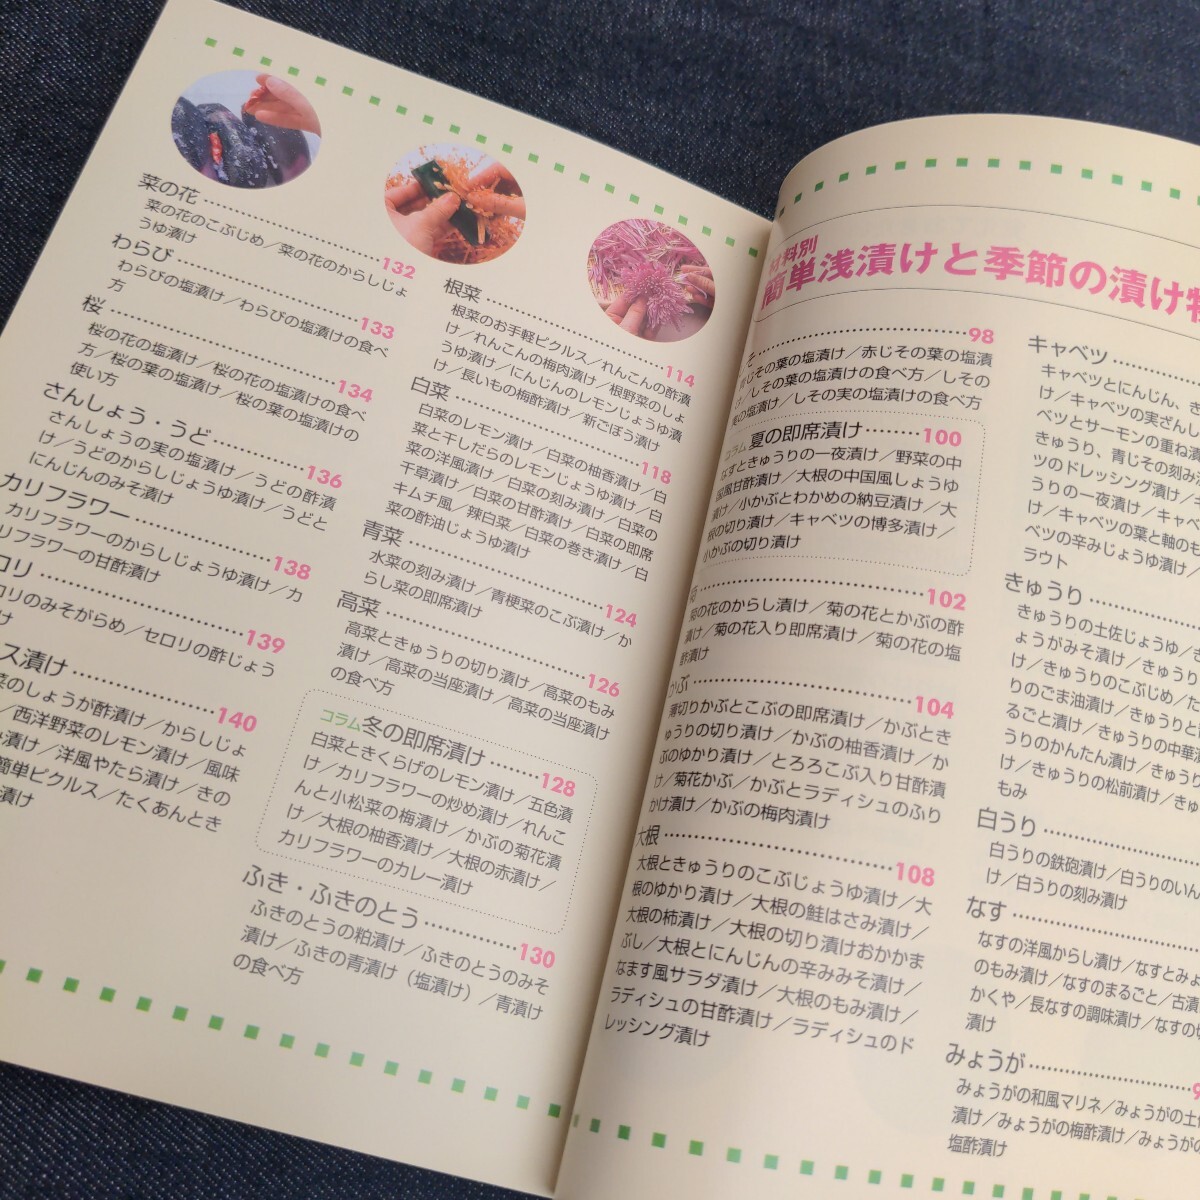 材料別
簡単浅漬けと季節の漬け物
キャベツ
キャベツとにんじん、き
け／キャベツの実ざんし
ベツとサーモンの重ね漬
きゅうり、青じその刻み漬
ツのドレッシング漬け／
うりの一夜漬け／キャベ
け／キャベツの葉と軸のも
ベツの辛みじょうゆ漬け／
ラウト
きゅうり
きゅうりの土佐じょうゆ／き
ょうがみそ漬け／きゅうり
け／きゅうりのこぶじめ／た
りのごま油漬け／きゅうりと
るごと漬け／きゅうりの中華
うりのかんたん漬け／きゅう
け／きゅうりの松前漬け／きゅ
もみ
白うり
白うりの鉄砲漬け／白うりのいん
け／白うりの刻み漬け
なす
なすの洋風からし漬け／なすとみょ
のもみ漬け／なすのまるごと／古漬
かくや／長なすの調味漬け／なすの
漬け
みょうが
みょうがの和風マリネ／みょうがの土
漬け／みょうがの梅酢漬け／みょうがの
塩酢漬け
そ 98
じその葉の塩漬け／赤じその葉の塩漬
け／しその葉の塩漬けの食べ方／しその
実の塩漬け／しその実の塩漬けの食べ方
コラム 夏の即席漬け 100
なすときゅうりの一夜漬け／野菜の中
国風甘酢漬け／大根の中国風しょうゆ
漬け／小かぶとわかめの納豆漬け／大
根の切り漬け／キャベツの博多漬け／
小かぶの切り漬け
102
菊の花のからし漬け／菊の花とかぶの酢
漬け／菊の花入り即席漬け／菊の花の塩
酢漬け
かぶ 104
薄切りかぶとこぶの即席漬け／かぶとき
ゅうりの切り漬け／かぶの柚香漬け／か
ぶのゆかり漬け／とろろこぶ入り甘酢漬
け／菊花かぶ／かぶとラディシュのふり
かけ漬け／かぶの梅肉漬け
大根 108
大根ときゅうりのこぶじょうゆ漬け／大
根のゆかり漬け／大根の鮭はさみ漬け／
大根の柿漬け／大根の切り漬けおかかま
ぶし／大根とにんじんの辛みみそ漬け／
なます風サラダ漬け／大根のもみ漬け／
ラディシュの甘酢漬け／ラディシュのド
レッシング漬け
根菜 114
根菜のお手軽ピクルス／れんこんの酢漬
け／れんこんの梅肉漬け／根野菜のしょ
うゆ漬け／にんじんのレモンじょうゆ漬
け／長いもの梅酢漬け／新ごぼう漬け
白菜 118
白菜のレモン漬け／白菜の柚香漬け／白
菜と干しだらのレモンじょうゆ漬け／白
菜の洋風漬け／白菜の刻み漬け／白菜の
千草漬け／白菜の甘酢漬け／白菜の即席
キムチ風／辣白菜／白菜の巻き漬け／白
菜の酢油じょうゆ漬け
青菜 124
水菜の刻み漬け／青梗菜のこぶ漬け／か
らし菜の即席漬け
高菜 126
高菜ときゅうりの切り漬け／高菜のもみ
漬け／高菜の当座漬け／高菜の当座漬け
の食べ方
コラム 冬の即席漬け 128
白菜ときくらげのレモン漬け／五色漬
け／カリフラワーの炒め漬け／れんこ
んと小松菜の梅漬け／かぶの菊花漬
け／大根の柚香漬け／大根の赤漬け／
カリフラワーのカレー漬け
ふき・ふきのとう 130
ふきのとうの粕漬け／ふきのとうのみそ
漬け／ふきの青漬け（塩漬け）／青漬け
の食べ方
菜の花 132
菜の花のこぶじめ／菜の花のからしじょ
うゆ漬け
わらび 133
わらびの塩漬け／わらびの塩漬けの食べ
方
桜 134
桜の花の塩漬け／桜の花の塩漬けの食べ
方／桜の葉の塩漬け／桜の葉の塩漬けの
使い方
さんしょう・うど 136
さんしょうの実の塩漬け／うどの酢漬
け／うどのからしじょうゆ漬け／うどと
にんじんのみそ漬け
カリフラワー 138
カリフラワーのからしじょうゆ漬け／カ
リフラワーの甘酢漬け
ロリ 139
ロリのみそがらめ／セロリの酢じょう
け
ス漬け 140
菜のしょうが酢漬け／からしじょ
／西洋野菜のレモン漬け／風味
み漬け／洋風やたら漬け／きの
簡単ピクルス／たくあんとき
漬け